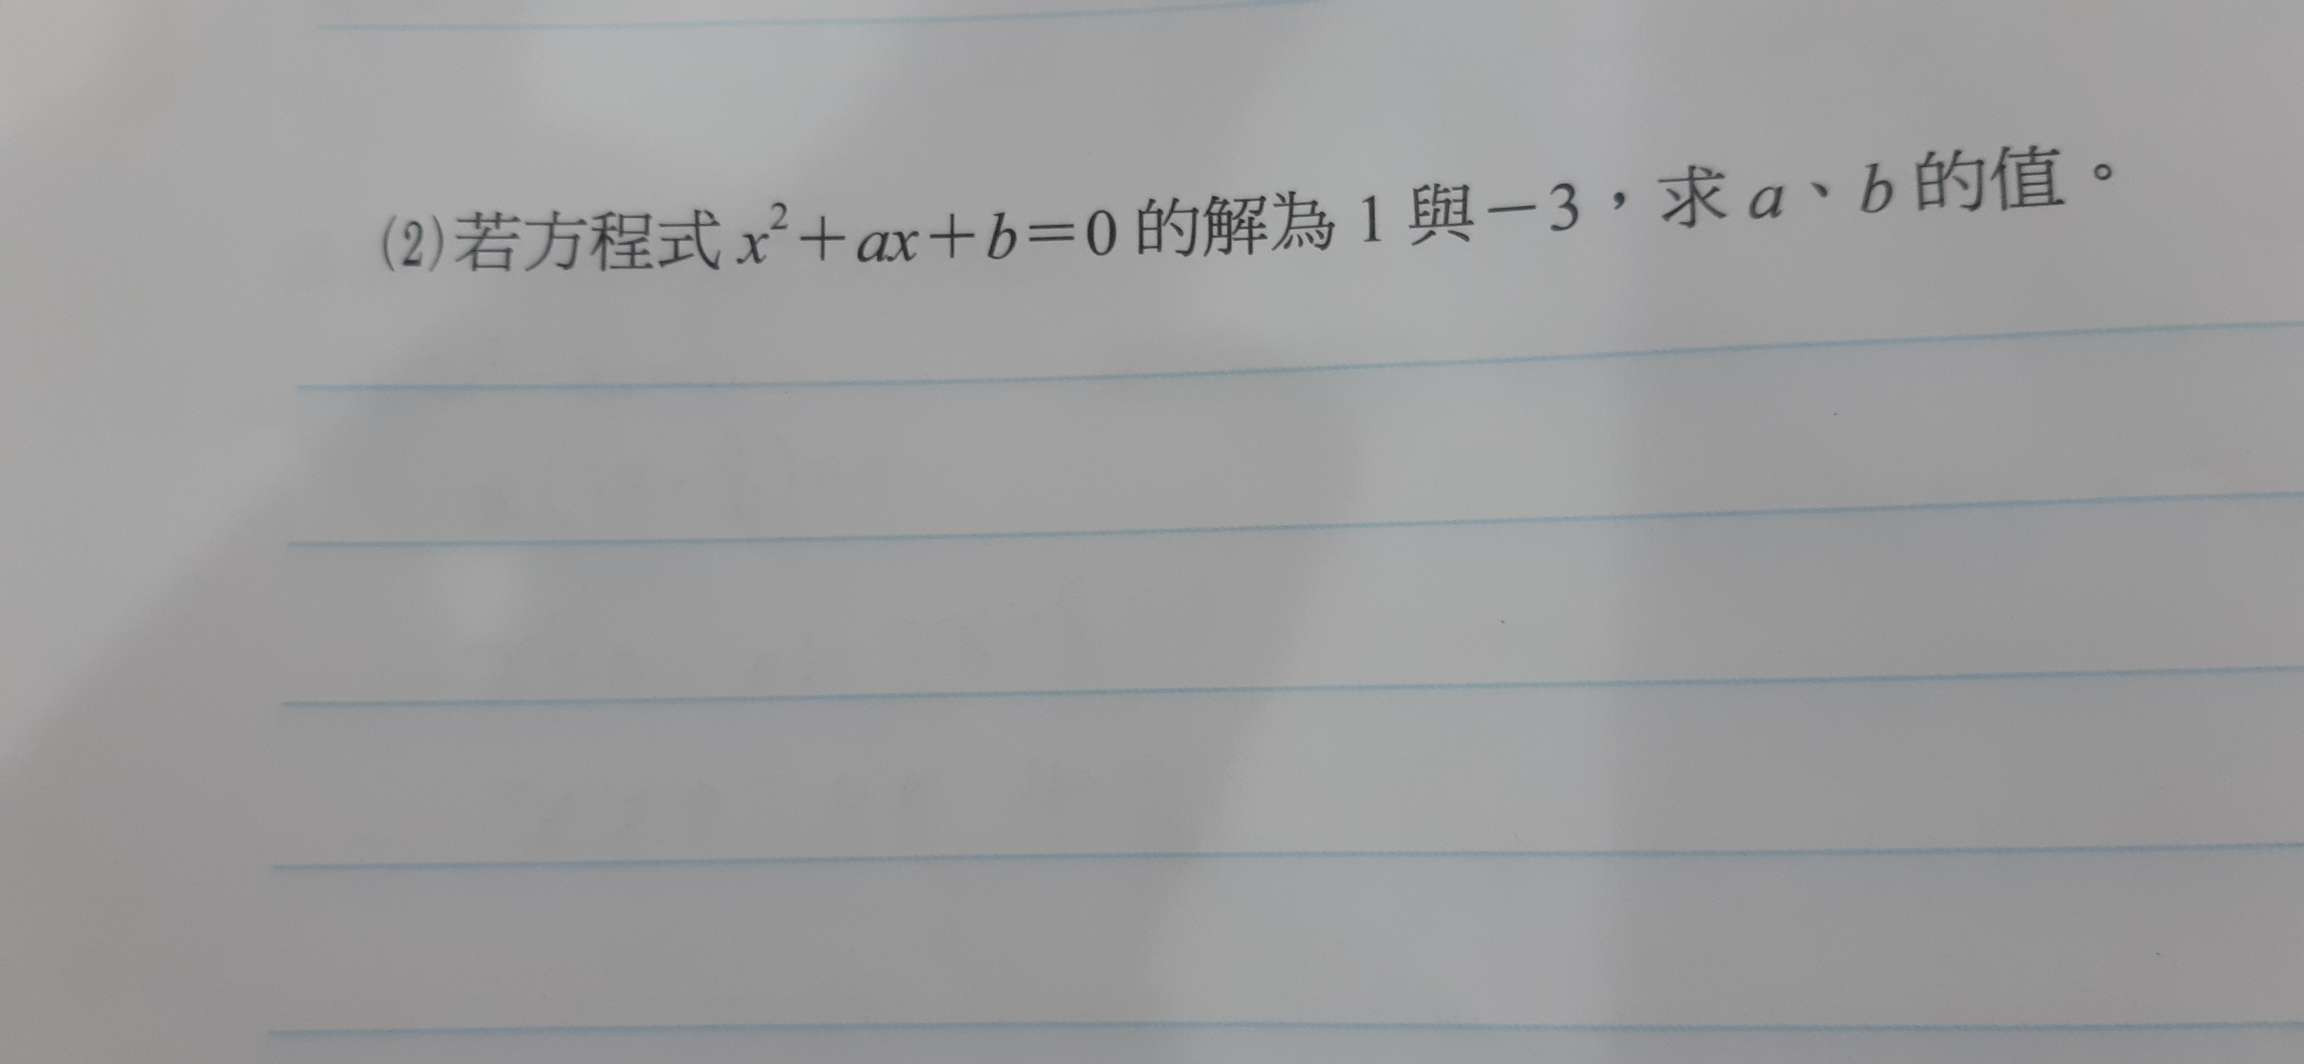 (2)若方程式 x²+ax+b=0 的解為 1 與-3,求 a、b 的值。